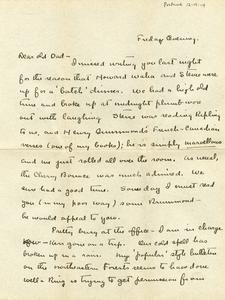 Portland 12-19-19
Friday Evening.
Dear old Dad —
I missed writing you last night
for the reason that Howard Waha and
were up
for a "batch" dinner. We had a high old
time and broke up at midnight plumb wore
out with laughing. was reading Kipling
to us, and Henry Drummond's French-Canadian
verses (one of my books); he is simply marvellous
and we just rolled all over the room. As usual,
the Cherry Bounce was much admired. We
sure had a good time. Some day I must read
you (in my poor way) some Drummond —
he would appeal to you.
Pretty busy at the office — I am in charge
now — has gone on a trip. Our cold spell has
broken up in rain. My "popular" style bulletin
on the northeastern Forests seems to have done
well — Ring is trying to get permission from